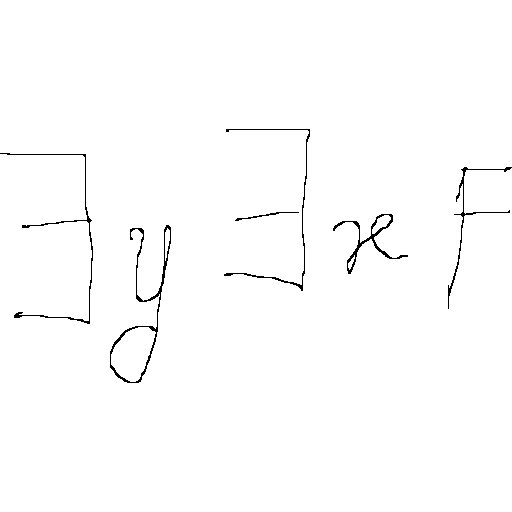 ∃y∃xF